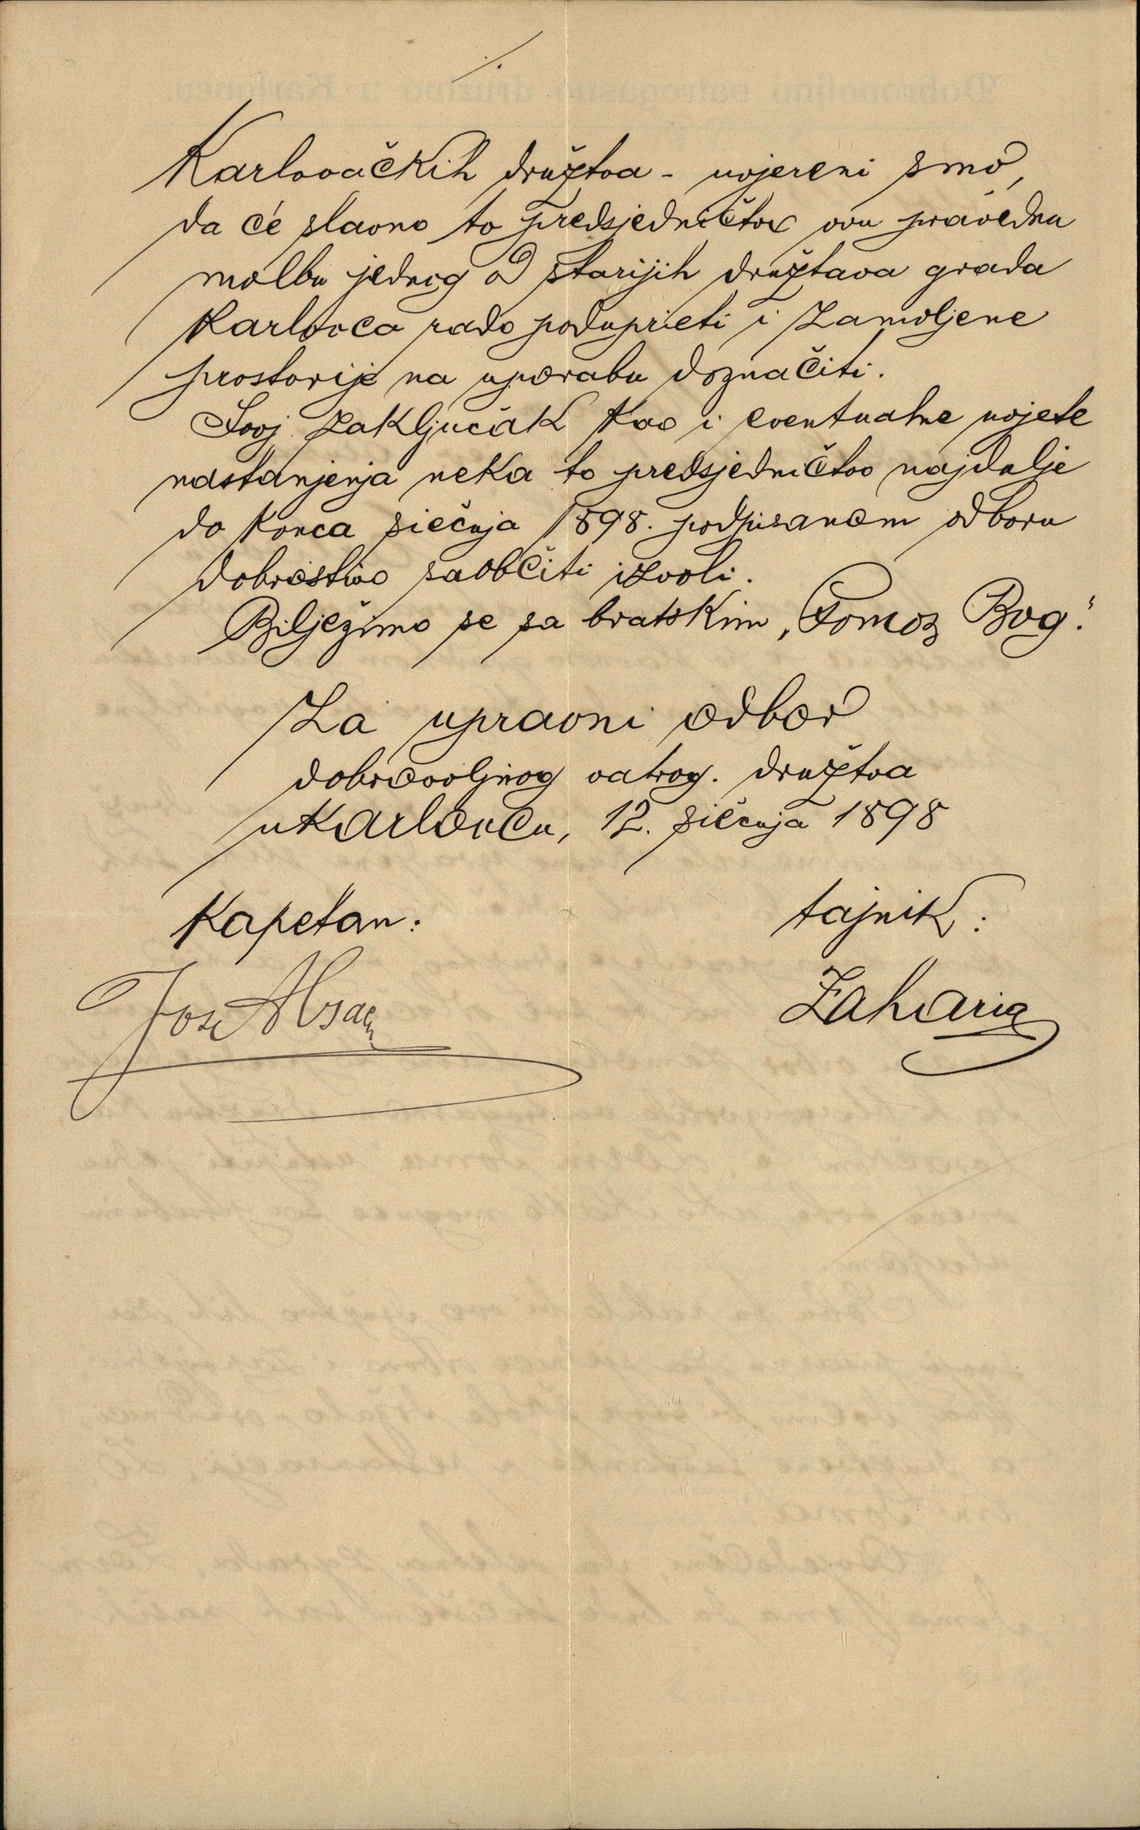 ./.
Karlovačkih družtva - uvjereni smo,
da će slavno to predsjedničtvo ovu pravednu
molbu jednog od starijih družtava grada
Karlovca rado poduprieti i zamoljene
prostorije na uporabu doznačiti.
Svoj zaključak kao i eventualne uvjete
nastanjenja neka to predsjedničtvo najdalje
do konca siečnja 1898. podpisanom odboru
dobrostivo saobčiti izvoli.
Bilježimo se sa bratskim „Pomoz Bog."
Za upravni odbor
dobrovoljnog vatrog. družtva
u Karlovcu, 12. siečnja 1898
Kapetan: tajnik:
Jos Zaharia